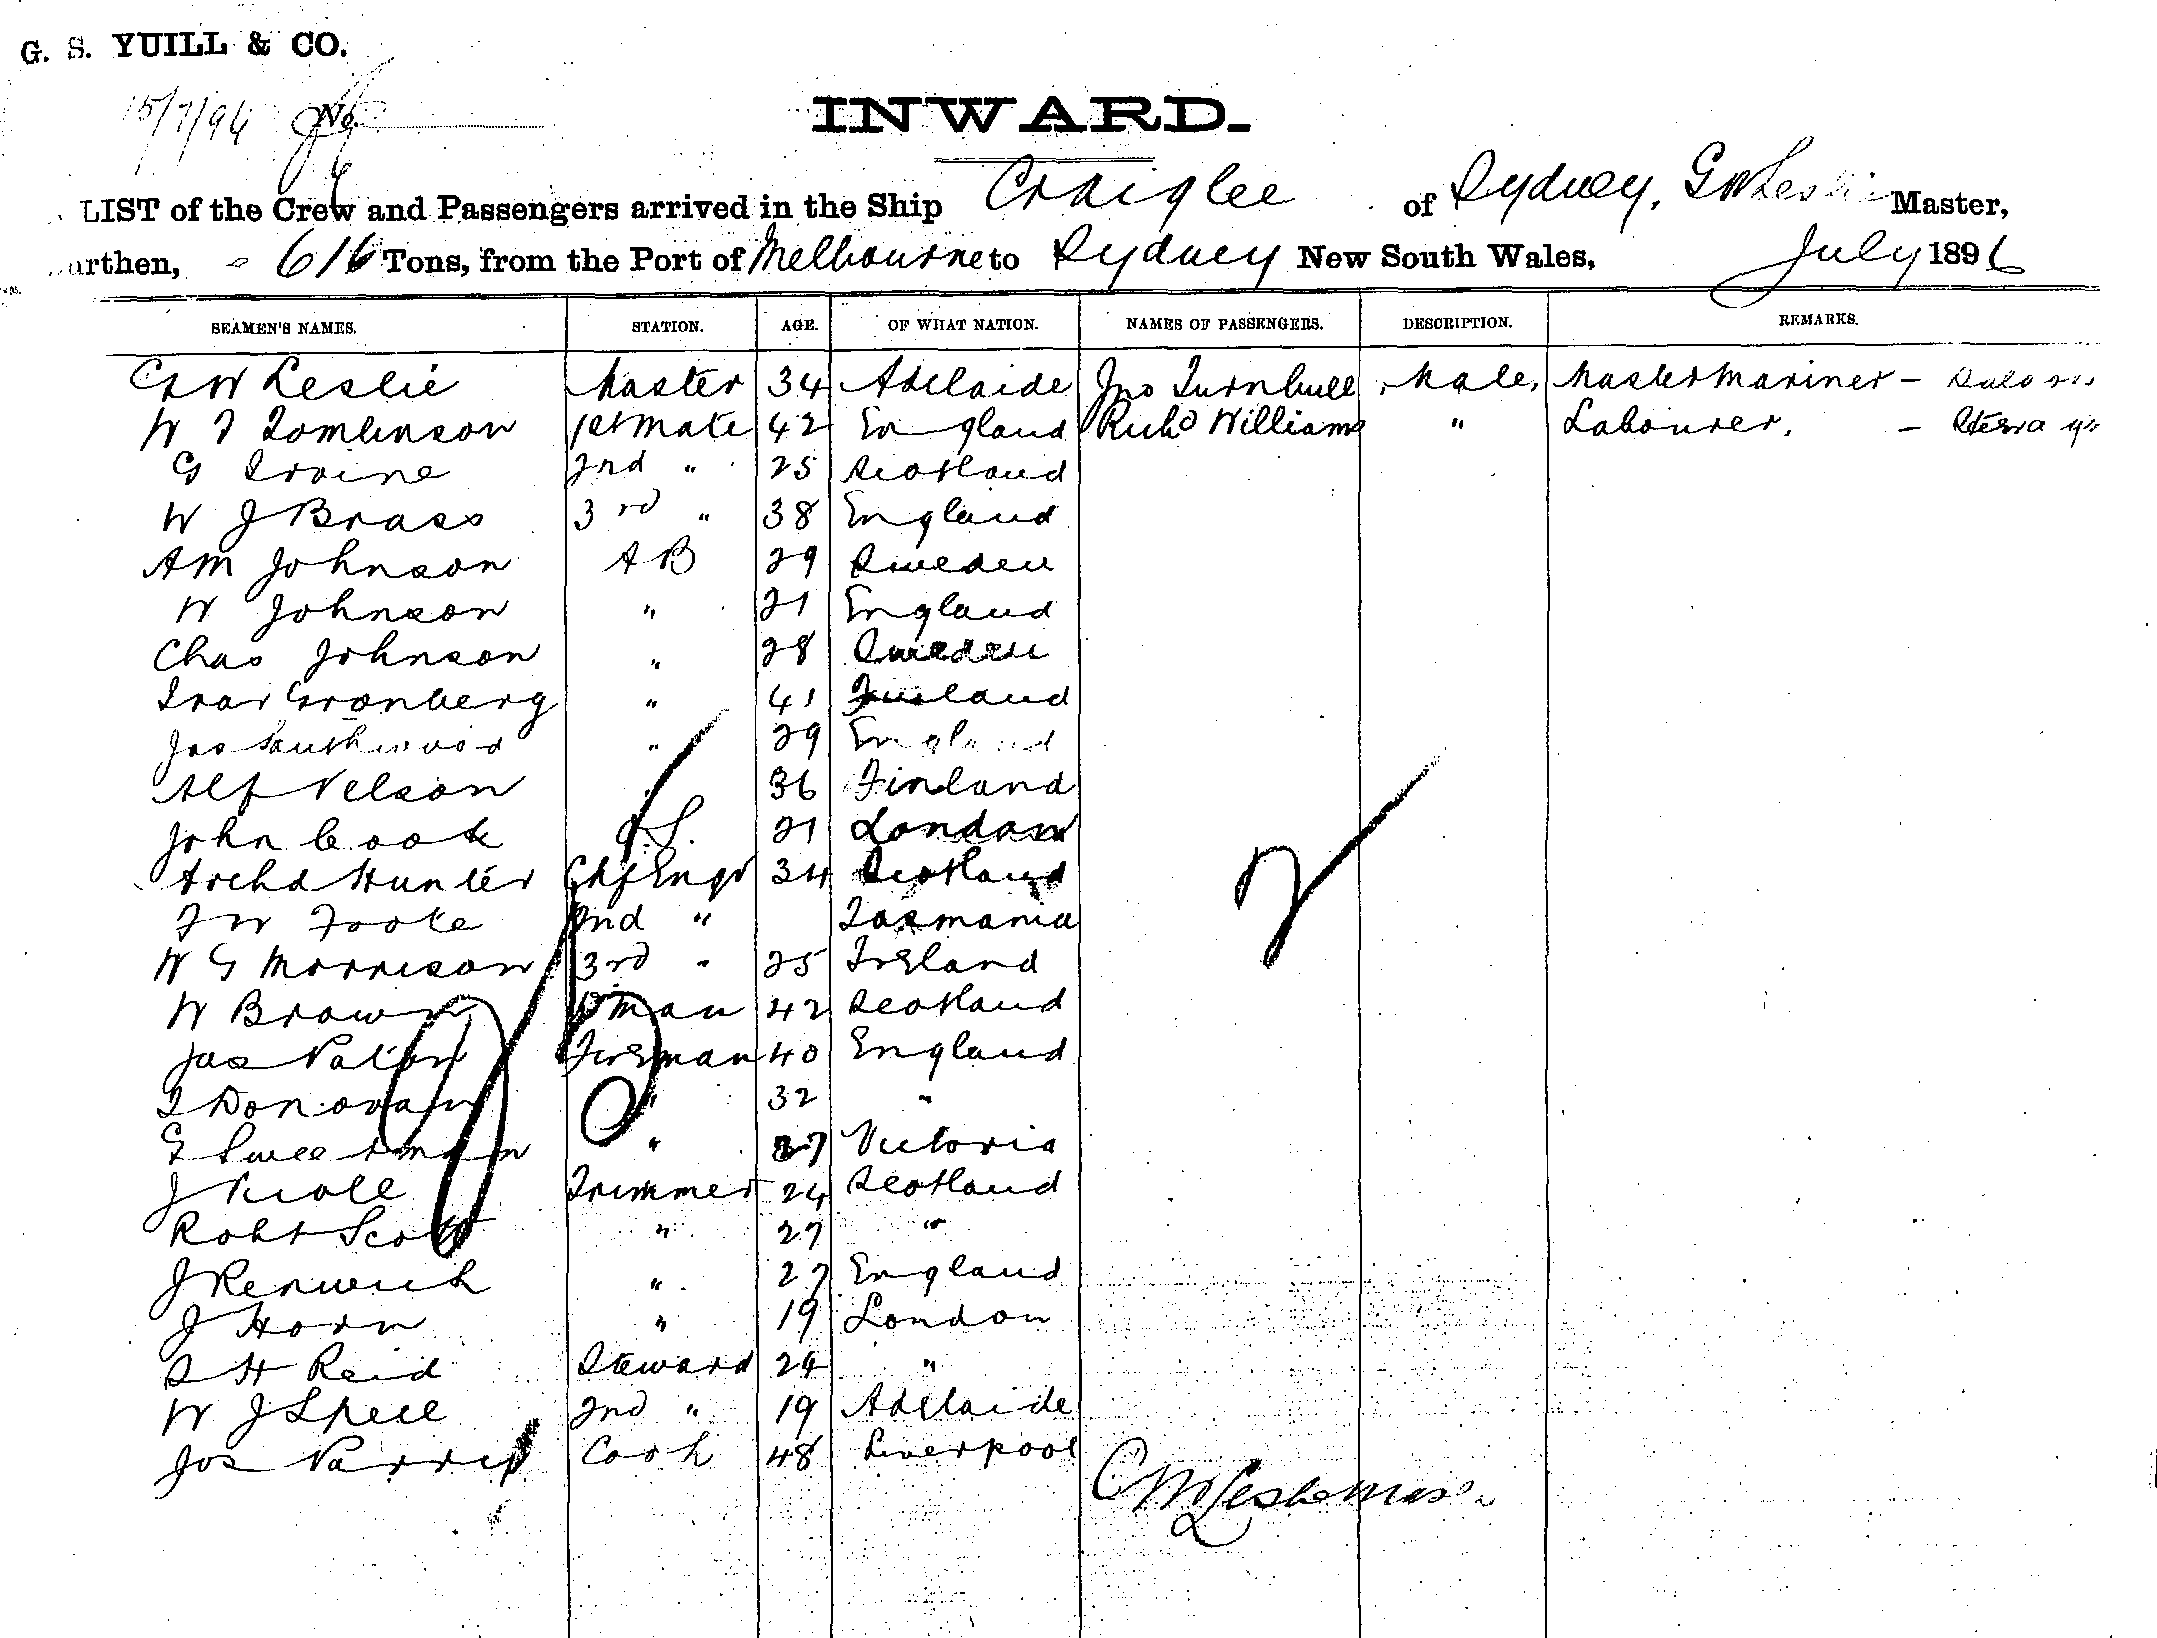 G. S. YUILL & CO.
15/7/96 No.
INWARD.
LIST of the Crew and Passengers arrived in the Ship Craiglee of Sydney, G W Leslie Master,
urthen, 616 Tons, from the Port of Melbourne to Sydney New South Wales, July 1896
SEAMEN'S NAMES. STATION. AGE. OF WHAT NATION. NAMES OF PASSENGERS. DESCRIPTION. REMARKS.
G W Leslie Master 34 Adelaide Jno Turnbull Male, Master Mariner - Saloon
W T Tomlinson 1st Mate 42 England Richd Williams " Labourer. - Steerage
G Irvine 2nd " 25 Scotland
W J Brass 3rd " 38 England
AM Johnson AB 29 Sweden
W Johnson " 21 England
Chas Johnson " 28 Sweden
Ivar Gronberg " 41 Finland
Jas Southwood " 29 England
Alf Nelson 36 Finland
John Cook O.S. 21 London
Archd Hunter Chf Engr 34 Scotland
F W Foote 2nd " Tasmania
W G Morrison 3rd " 25 Ireland
W Brown D'man 42 Scotland
Jas Paton Fireman 40 England
T Donovan " 32 "
G Sweetman " 27 Victoria
J Nicoll Trimmer 24 Scotland
Robt Scott " 27 "
J Renwick " 27 England
J Horn " 19 London
S H Reid Steward 24 "
W J Spell 2nd " 19 Adelaide
Jos Parris Cook 48 Liverpool
GW Leslie Master